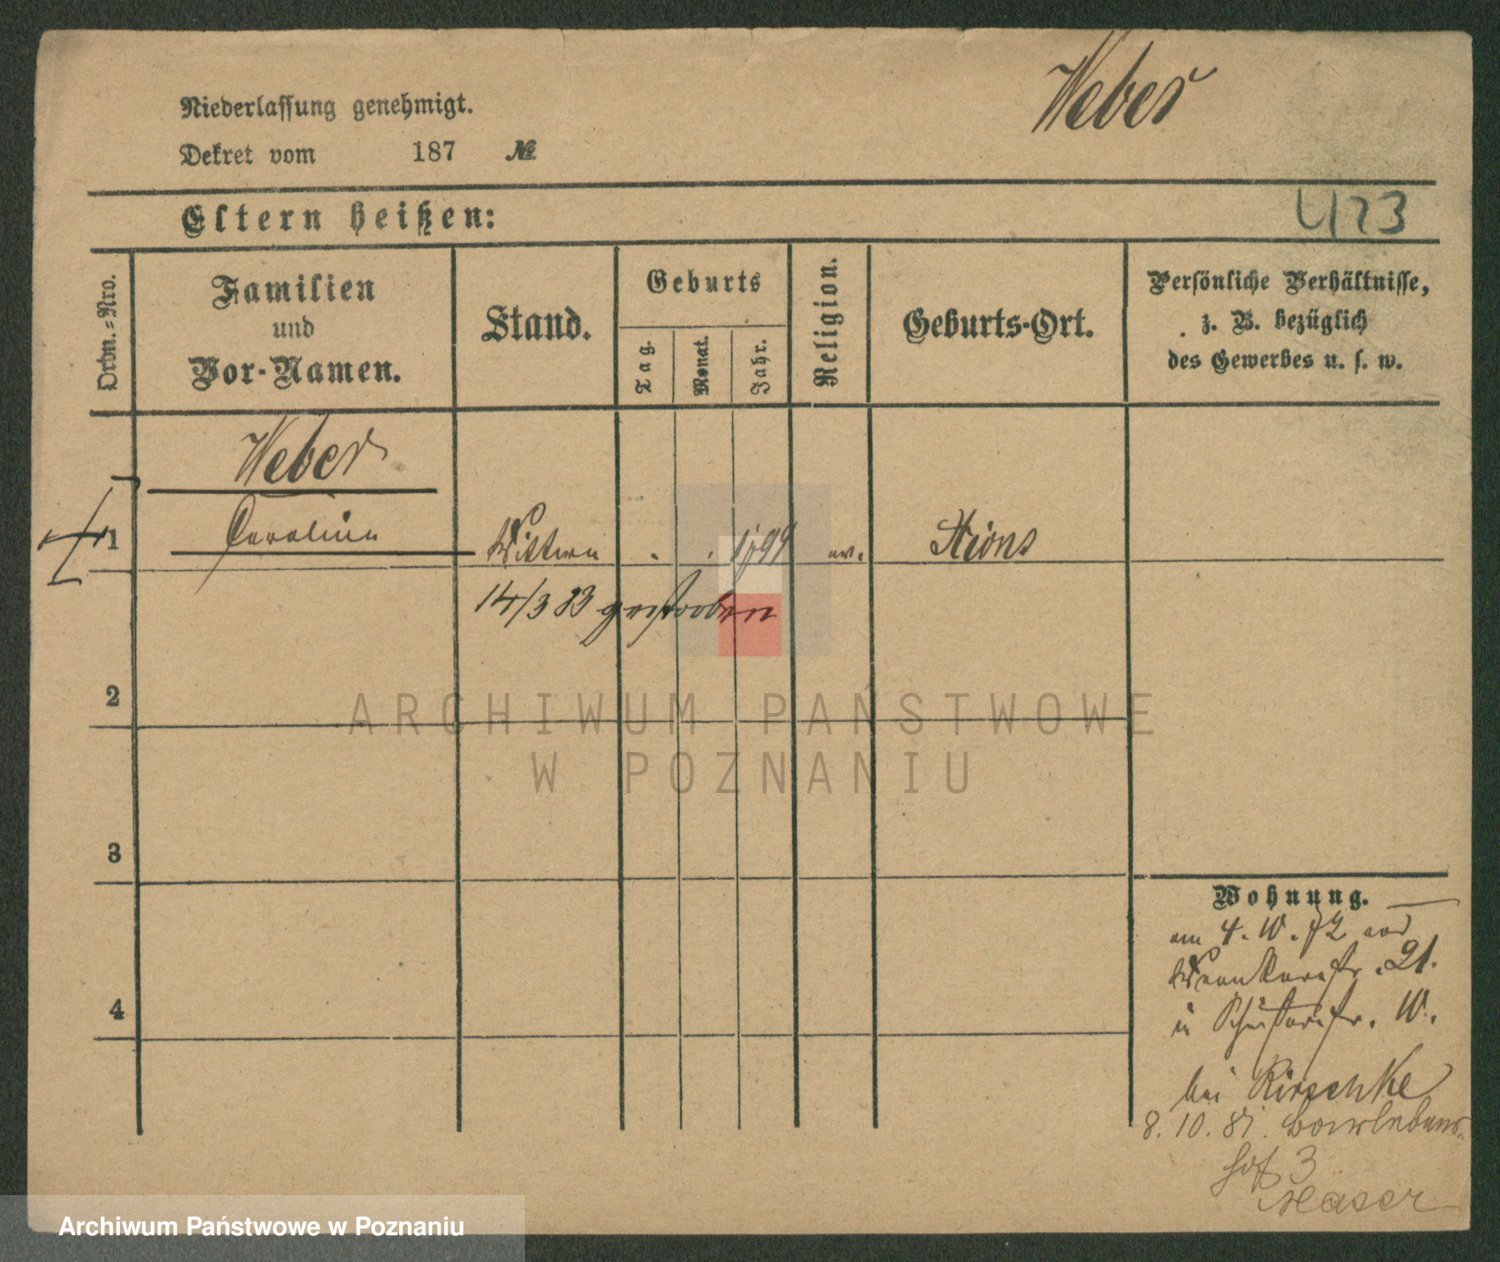 Weber
Niederlassung genehmigt.
Dekret vom 187 №
Eltern heißen:
473
Ordn.-Nro.
Familien
und
Vor-Namen.
Stand.
Geburts
Tag.
Monat.
Jahr.
Religion.
Geburts-Ort.
Persönliche Verhältnisse,
z. B. bezüglich
des Gewerbes u. s. w.
Weber
1 Caroline Wittwe . . 1799 ev. Xions
14/3 83 gestorben
2
3
4
Wohnung.
am 4. 10. 72 von
21.
u 10.
bei Kirschke
8. 10. 81.
hof 3
ARCHIWUM PAŃSTWOWE
W POZNANIU
Archiwum Państwowe w Poznaniu